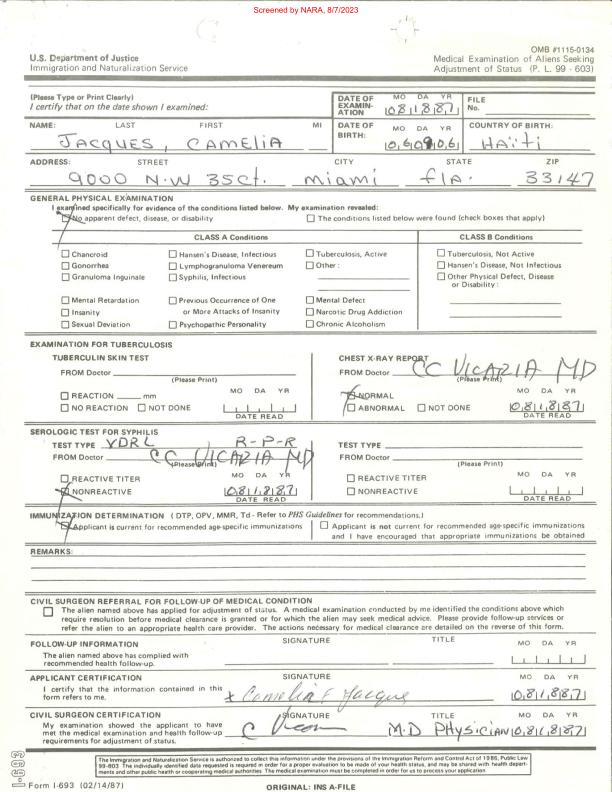 Screened by NARA, 8/7/2023
OMB #1115-0134
U.S. Department of Justice
Immigration and Naturalization Service
Medical Examination of Aliens Seeking
Adjustment of Status (P. L. 99 - 603)
(Please Type or Print Clearly)
I certify that on the date shown I examined:
DATE OF EXAMIN- ATION MO DA YR 08 18 87
FILE No.
NAME: LAST FIRST MI
JACQUES, CAMELIA
DATE OF BIRTH: MO DA YR 06 09 06
COUNTRY OF BIRTH: HAïti
ADDRESS: STREET CITY STATE ZIP
9000 N.W 35Ct. miami flA. 33147
GENERAL PHYSICAL EXAMINATION
I examined specifically for evidence of the conditions listed below. My examination revealed:
No apparent defect, disease, or disability
The conditions listed below were found (check boxes that apply)
CLASS A Conditions
CLASS B Conditions
Chancroid
Gonorrhea
Granuloma Inguinale
Hansen's Disease, Infectious
Lymphogranuloma Venereum
Syphilis, Infectious
Tuberculosis, Active
Other:
Tuberculosis, Not Active
Hansen's Disease, Not Infectious
Other Physical Defect, Disease
or Disability:
Mental Retardation
Insanity
Sexual Deviation
Previous Occurrence of One
or More Attacks of Insanity
Psychopathic Personality
Mental Defect
Narcotic Drug Addiction
Chronic Alcoholism
EXAMINATION FOR TUBERCULOSIS
TUBERCULIN SKIN TEST
FROM Doctor
(Please Print)
REACTION mm
NO REACTION NOT DONE
MO DA YR
DATE READ
CHEST X-RAY REPORT
FROM Doctor CC VICARIA MD
(Please Print)
NORMAL
ABNORMAL NOT DONE
MO DA YR
08 18 87
DATE READ
SEROLOGIC TEST FOR SYPHILIS
TEST TYPE VDRL R-P-R
FROM Doctor CC VICARIA MD
(Please Print)
REACTIVE TITER
NONREACTIVE
MO DA YR
08 18 87
DATE READ
TEST TYPE
FROM Doctor
(Please Print)
REACTIVE TITER
NONREACTIVE
MO DA YR
DATE READ
IMMUNIZATION DETERMINATION (DTP, OPV, MMR, Td - Refer to PHS Guidelines for recommendations.)
Applicant is current for recommended age-specific immunizations
Applicant is not current for recommended age-specific immunizations
and I have encouraged that appropriate immunizations be obtained
REMARKS:
CIVIL SURGEON REFERRAL FOR FOLLOW-UP OF MEDICAL CONDITION
The alien named above has applied for adjustment of status. A medical examination conducted by me identified the conditions above which
require resolution before medical clearance is granted or for which the alien may seek medical advice. Please provide follow-up services or
refer the alien to an appropriate health care provider. The actions necessary for medical clearance are detailed on the reverse of this form.
FOLLOW-UP INFORMATION SIGNATURE TITLE MO DA YR
The alien named above has complied with
recommended health follow-up.
APPLICANT CERTIFICATION SIGNATURE MO DA YR
I certify that the information contained in this
form refers to me.
x Camelia F Jacque 08 18 87
CIVIL SURGEON CERTIFICATION SIGNATURE TITLE MO DA YR
My examination showed the applicant to have
met the medical examination and health follow-up
requirements for adjustment of status.
M.D PHYSICIAN 08 18 87
The Immigration and Naturalization Service is authorized to collect this information under the provisions of the Immigration Reform and Control Act of 1986, Public Law
99-603. The individually identified data requested is required in order for a proper evaluation to be made of your health status, and may be shared with health depart-
ments and other public health or cooperating medical authorities. The medical examination must be completed in order for us to process your application.
Form I-693 (02/14/87)
ORIGINAL: INS A-FILE